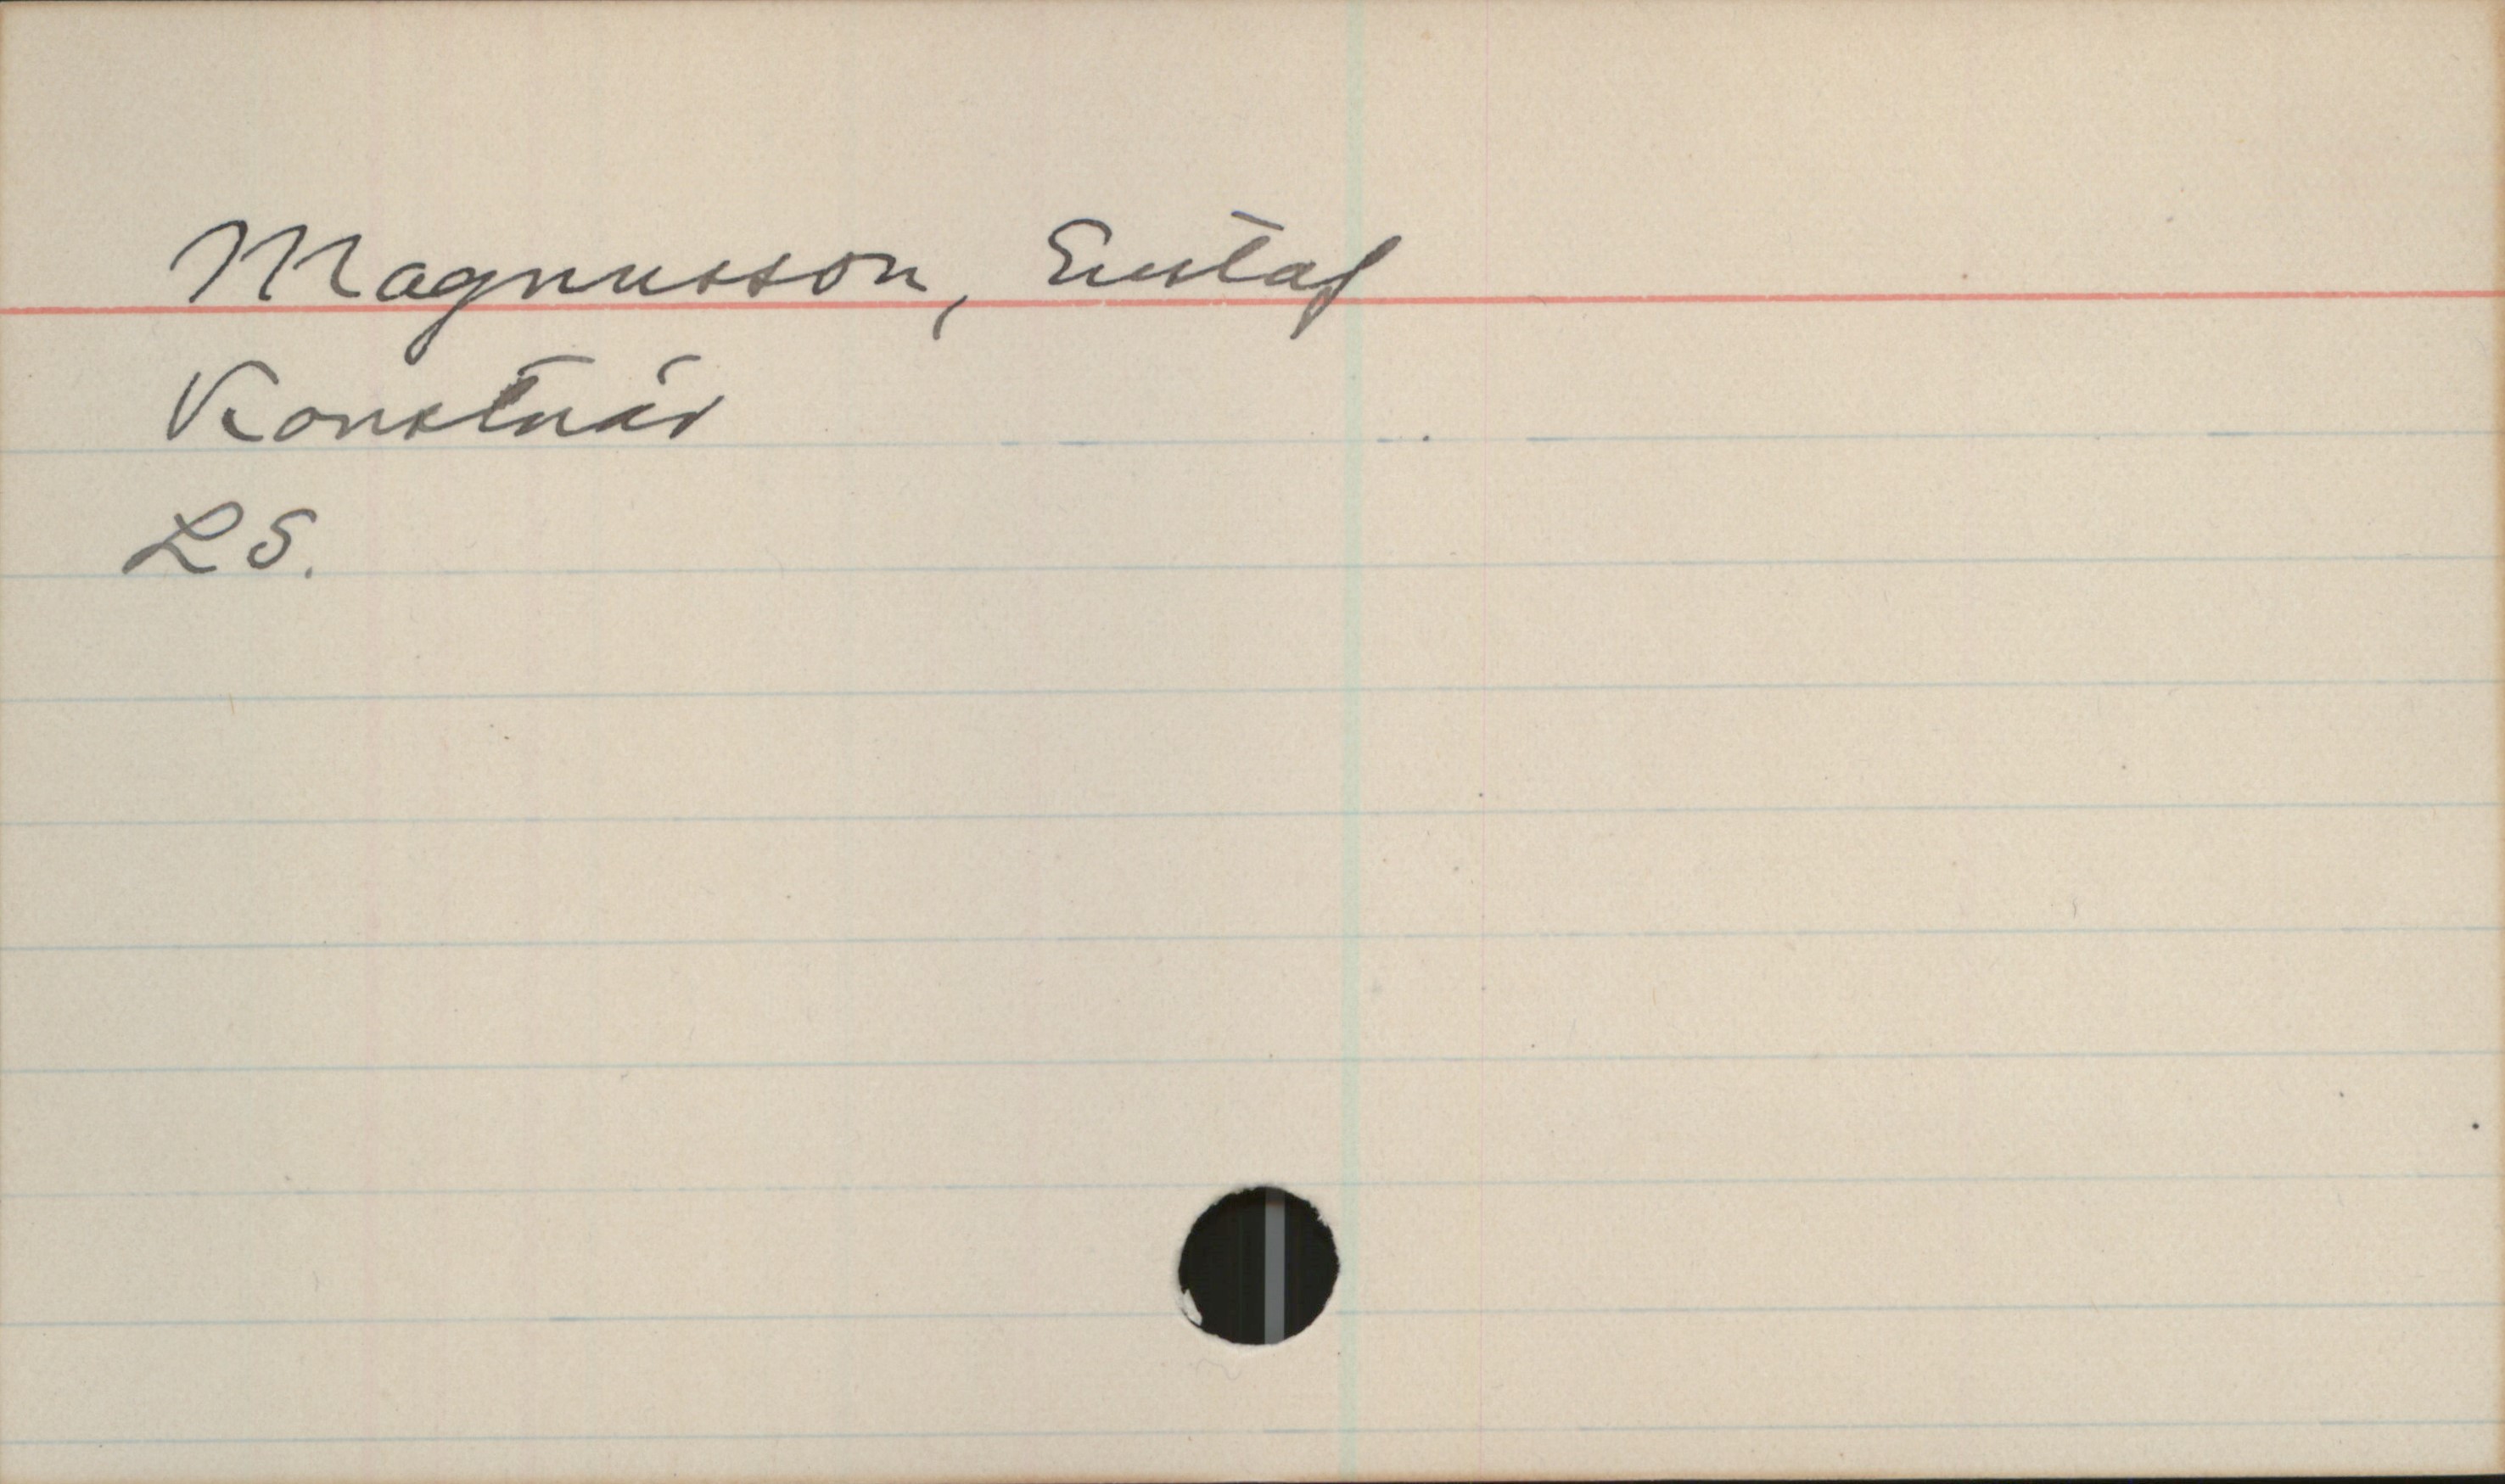 Magnusson, Gustaf
Konstnär
LS.